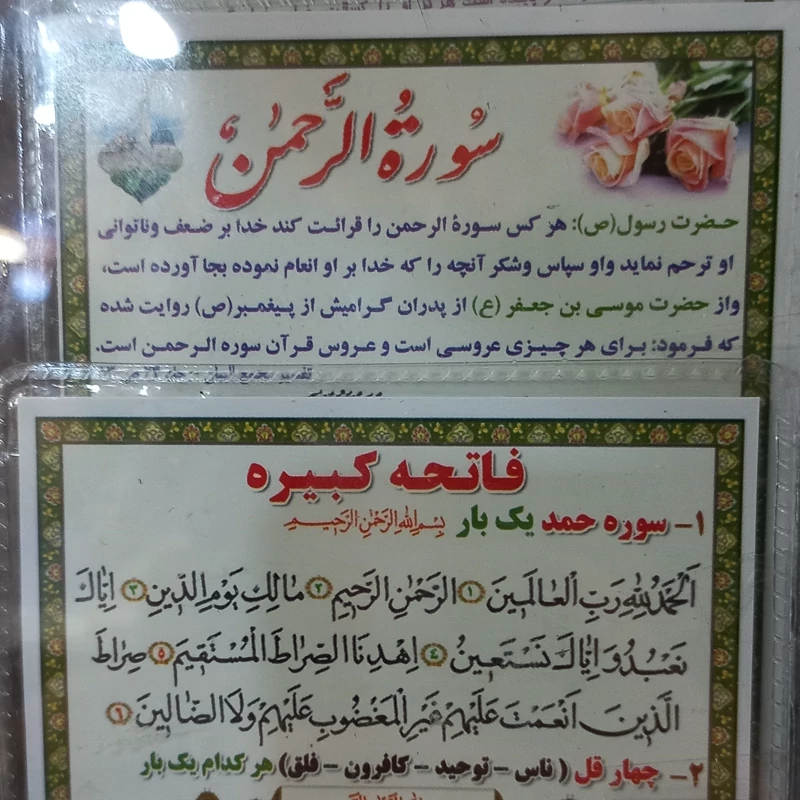 سُورَةُ الرَّحمٰنِ
حضرت رسول(ص): هر کس سورهٔ الرحمن را قرائت کند خدا بر ضعف وناتوانی
او ترحم نماید واو سپاس وشکر آنچه را که خدا بر او انعام نموده بجا آورده است،
واز حضرت موسی بن جعفر (ع) از پدران گرامیش از پیغمبر(ص) روایت شده
که فرمود: برای هر چیزی عروسی است و عروس قرآن سوره الرحمن است.
فاتحه کبیره
۱- سوره حمد یک بار بِسْمِ اللهِ الرَّحْمٰنِ الرَّحيمِ
اَلْحَمْدُ لِلّٰهِ رَبِّ الْعالَمينَ ﴿۱﴾ الرَّحْمٰنِ الرَّحيمِ ﴿۲﴾ مالِكِ يَوْمِ الدّينِ ﴿۳﴾ اِيّاكَ
نَعْبُدُ وَ اِيّاكَ نَسْتَعينُ ﴿۴﴾ اِهْدِنَا الصِّراطَ الْمُسْتَقيمَ ﴿۵﴾ صِراطَ
الَّذينَ اَنْعَمْتَ عَلَيْهِمْ غَيْرِ الْمَغْضُوبِ عَلَيْهِمْ وَلَا الضّالّينَ ﴿۶﴾
۲- چهار قل ( ناس - توحید - کافرون - فلق) هر کدام یک بار